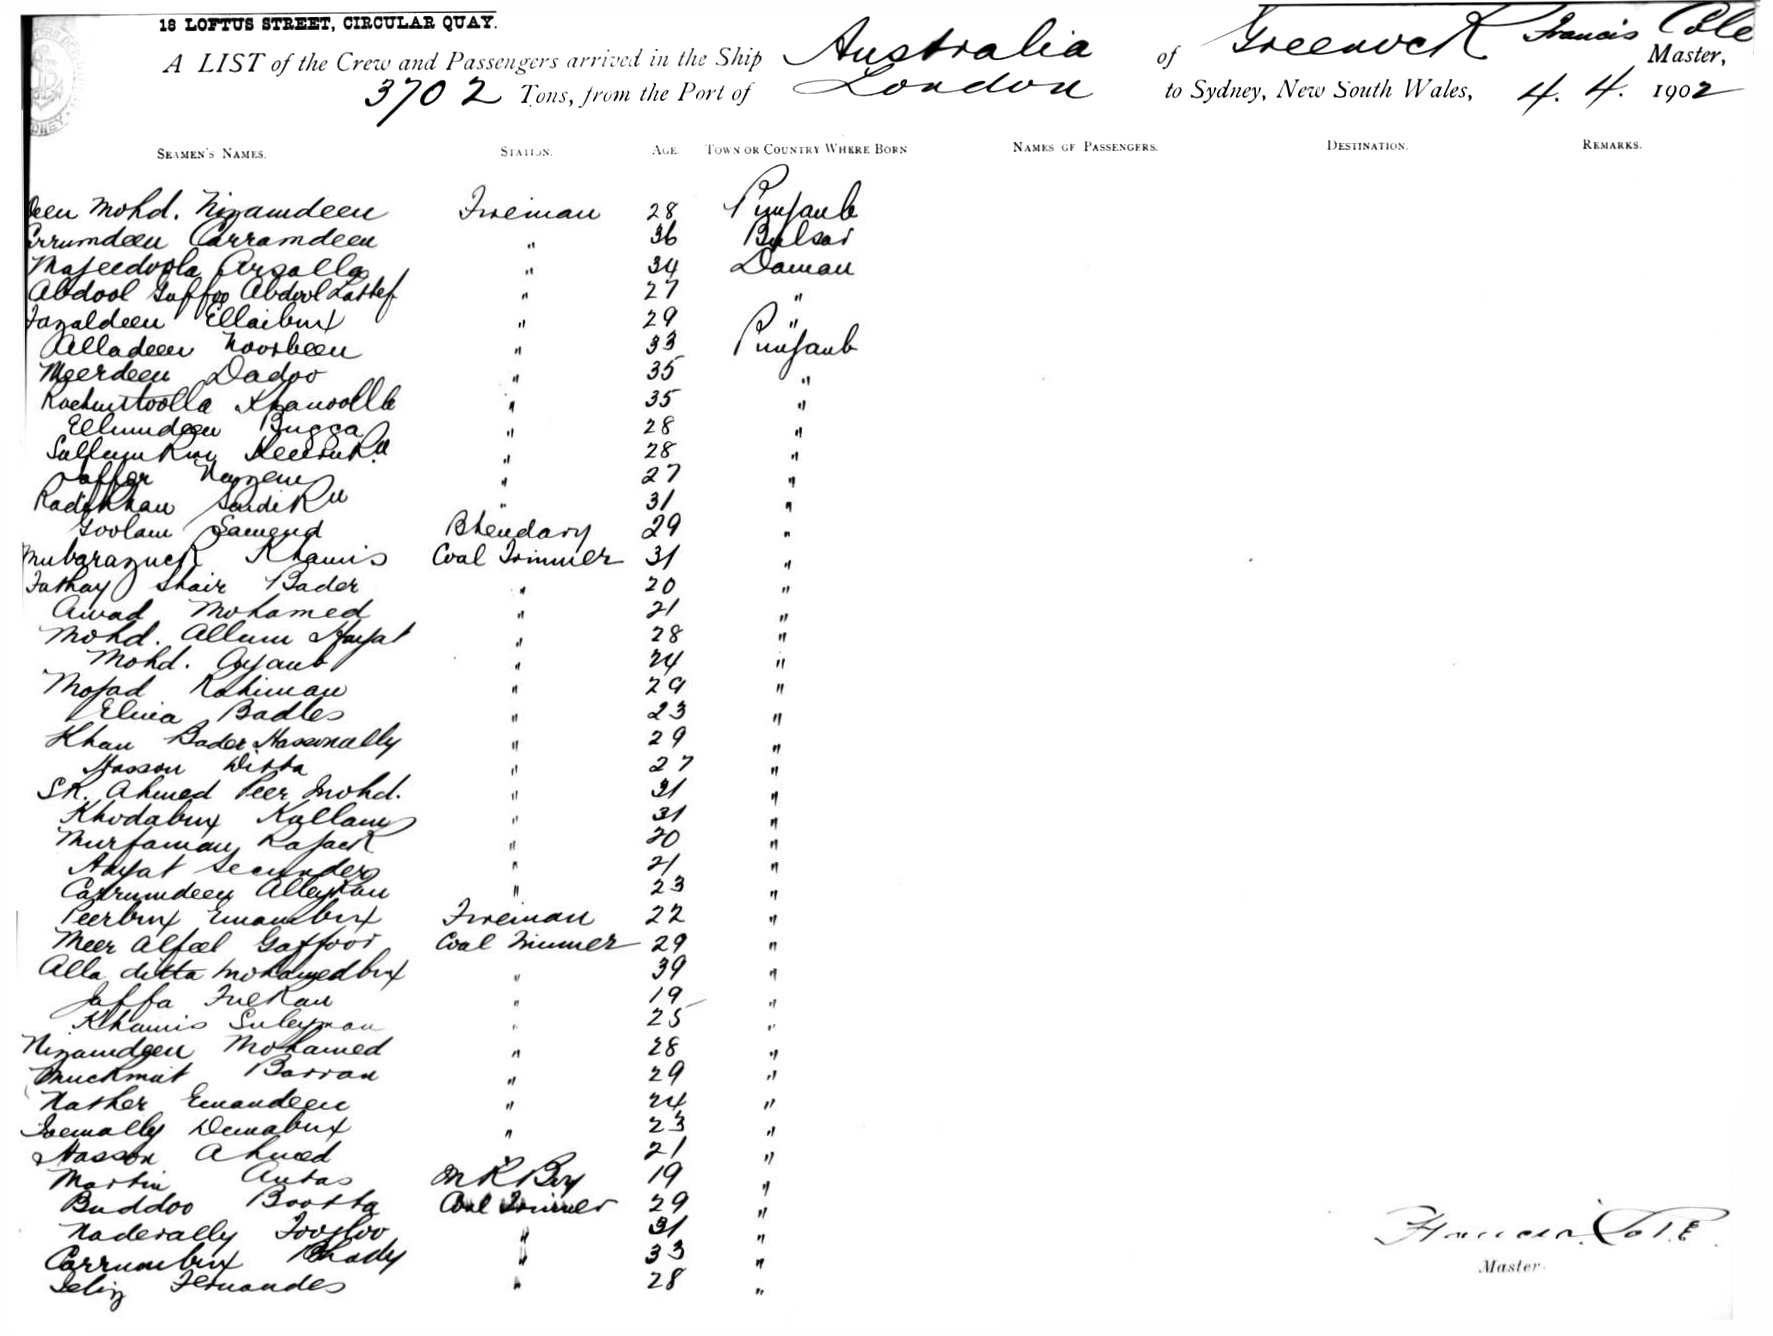 18 LOFTUS STREET, CIRCULAR QUAY.
A LIST of the Crew and Passengers arrived in the Ship Australia of Greenock Francis Cole Master,
3702 Tons, from the Port of London to Sydney, New South Wales, 4. 4. 1902
SEAMEN'S NAMES. STATION. AGE. TOWN OR COUNTRY WHERE BORN NAMES OF PASSENGERS. DESTINATION. REMARKS.
Deen Mohd. Nizamdeen Fireman 28 Punjaub
Carramdeen " 36 Bulsar
Majeedoola " 34 Daman
Abdool Guffoo Abdool Lattef " 27 "
Fazaldeen Ellaibux " 29 "
Alladeen Noorbeen " 33 Punjaub
Meerdeen Dadoo " 35 "
" 35 "
Bugga " 28 "
" 28 "
Jaffer " 27 "
" 31 "
Goolam Bhendary 29 "
Mubarazuck Khamis Coal Trimmer 31 "
Fathay Shair Bader " 20 "
Awad Mohamed " 21 "
Mohd. Allum Hayat " 28 "
Mohd. Ayaub " 24 "
Mojad Rahiman " 29 "
Elwia Badles " 23 "
Khan Bader Hassonally " 29 "
Hasson Ditta " 27 "
SK. Ahmed Peer Mohd. " 31 "
Khodabux Kallam " 31 "
Rajack " 20 "
Secunder " 21 "
Carrumdeen " 23 "
Peerbux Emambux Fireman 22 "
Meer Gaffoor Coal Trimmer 29 "
Alla ditta Mohamedbux " 39 "
Jaffa " 19 "
Khamis Suleyman " 25 "
Nizamdeen Mohamed " 28 "
Barran " 29 "
Nather Emandeen " 24 "
" 23 "
Hasson Ahmed " 21 "
Martin Antas 19 "
Buddoo Bootta Coal Trimmer 29 "
Naderally " 31 "
Carrumbux " 33 "
Fernandes " 28 "
Francis Cole
Master.